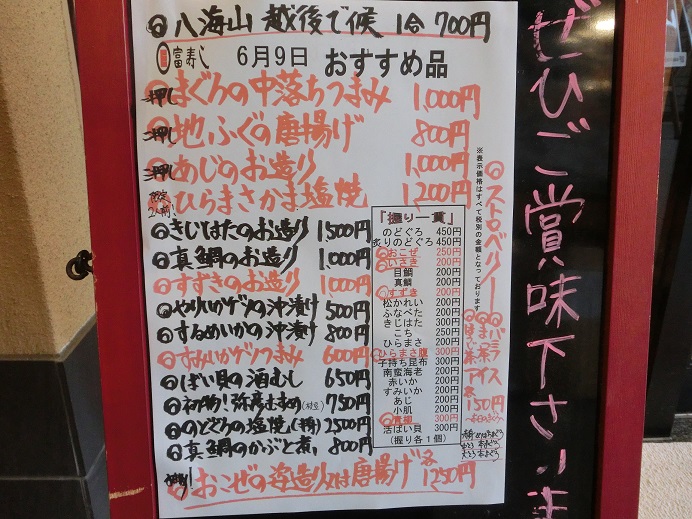 ◎八海山 越後で候 1合 700円
富寿し 6月9日 おすすめ品
押し ◎まぐろの中落ちつまみ 1,000円
押し ◎地ふぐの唐揚げ 800円
押し ◎あじのお造り 1,000円
限定2人前! ◎ひらまさかま塩焼 1,200円
◎きじはたのお造り 1,500円
◎真鯛のお造り 1,000円
◎すずきのお造り 1,000円
◎やりいかゲソの沖漬け 500円
◎するめいかの沖漬け 800円
◎すみいかゲソつまみ 600円
◎ばい貝の酒むし 650円
◎初物!弥彦むすめ(枝豆) 750円
◎のどぐろの塩焼(1尾) 2500円
◎真鯛のかぶと煮 800円
◎おこぜの姿造り又は唐揚げ 各1250円
「握り一貫」
のどぐろ 450円
炙りのどぐろ 450円
◎おこぜ 250円
◎いさき 200円
目鯛 200円
真鯛 200円
◎すずき 200円
松かれい 200円
ふなべた 200円
きじはた 300円
こち 200円
ひらまさ 200円
◎ひらまさ腹 300円
子持ち昆布 300円
南蛮海老 200円
赤いか 200円
すみいか 200円
あじ 200円
小肌 200円
◎青柳 300円
活ばい貝 300円
(握り各1個)
※表示価格はすべて税別の金額となっております
◎ストロベリー
◎バニラ
◎まっ茶
◎ほうじ茶
アイス
各150円
ぜひご賞味下さいま